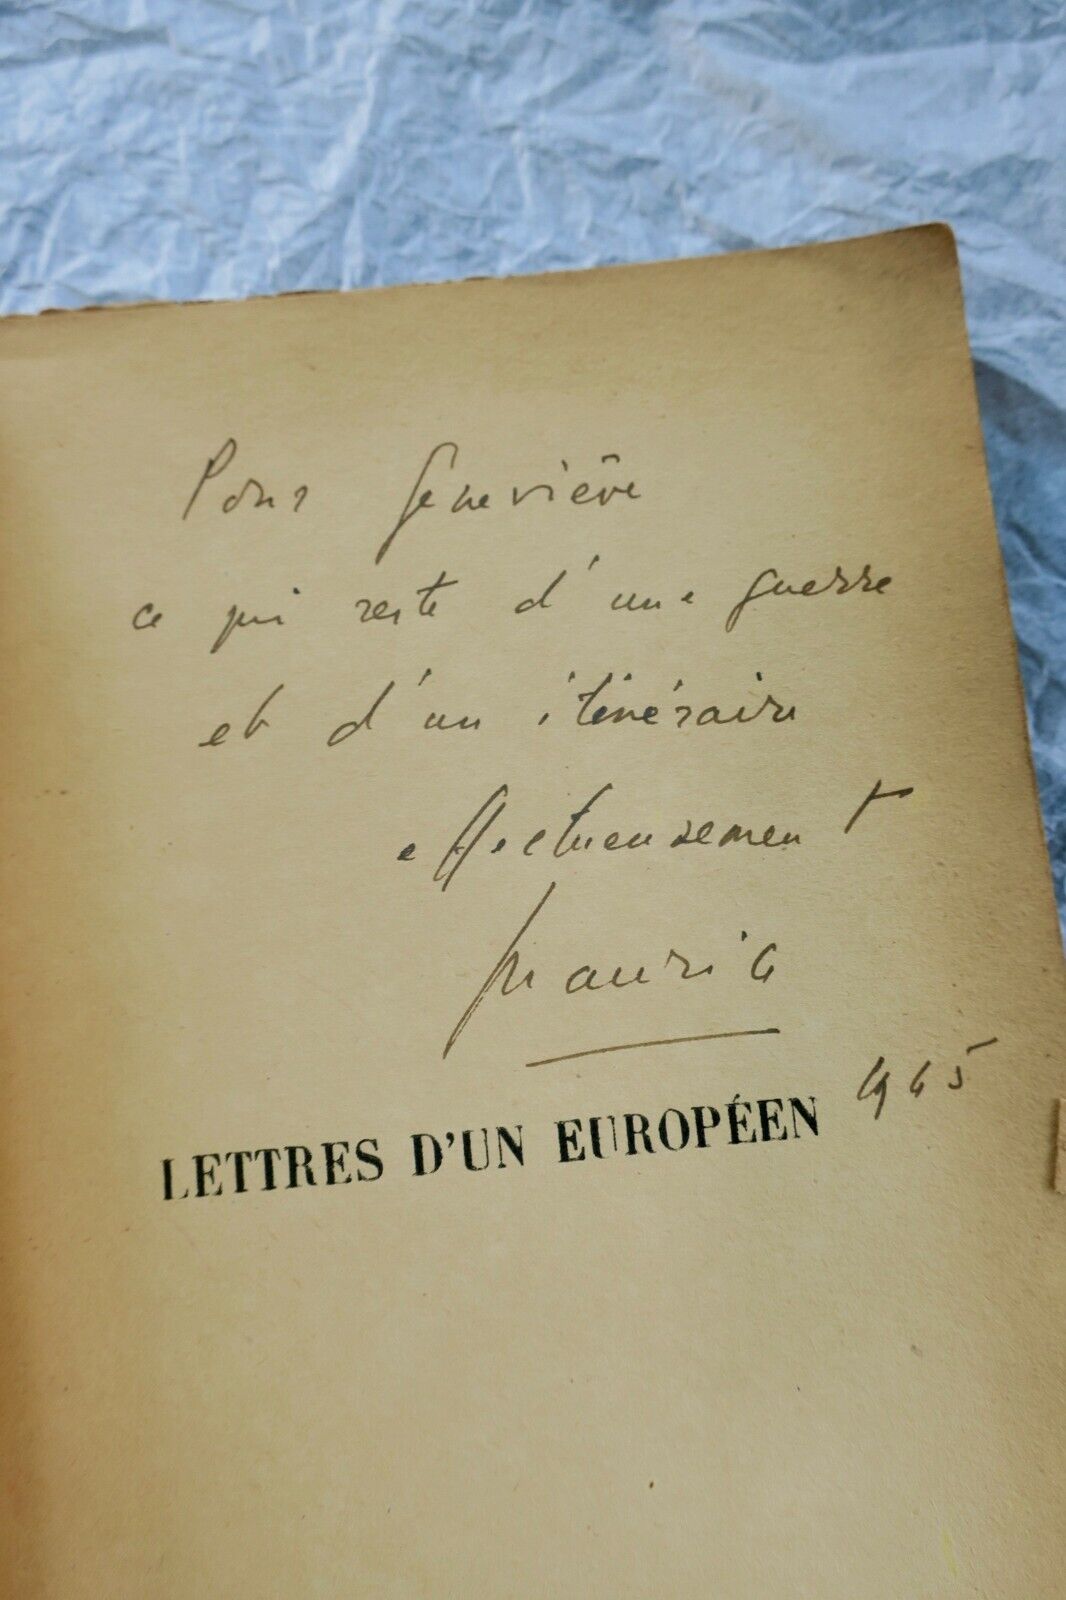 Pour Geneviève
ce qui reste d'une guerre
et d'un itinéraire
affectueusement
Maurice
1945
LETTRES D'UN EUROPÉEN